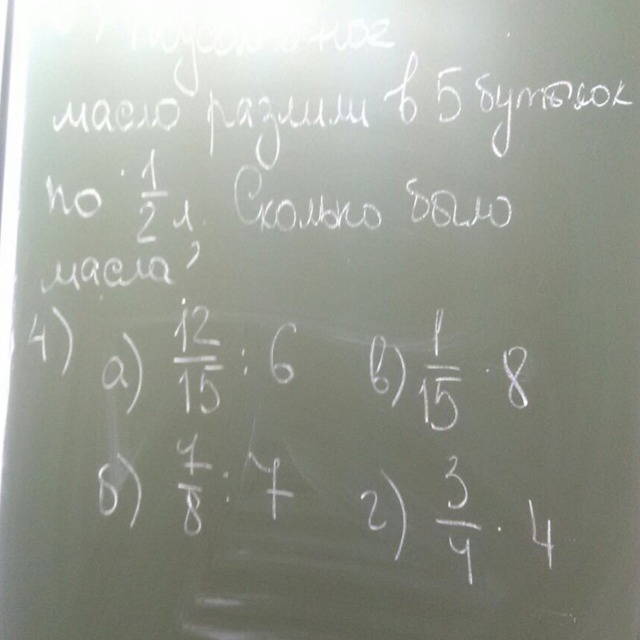 масло разлили в 5 бутылок
по 1/2 л. Сколько было
масла?
4) а) 12/15 : 6 в) 1/15 · 8
б) 7/8 : 7 г) 3/4 · 4